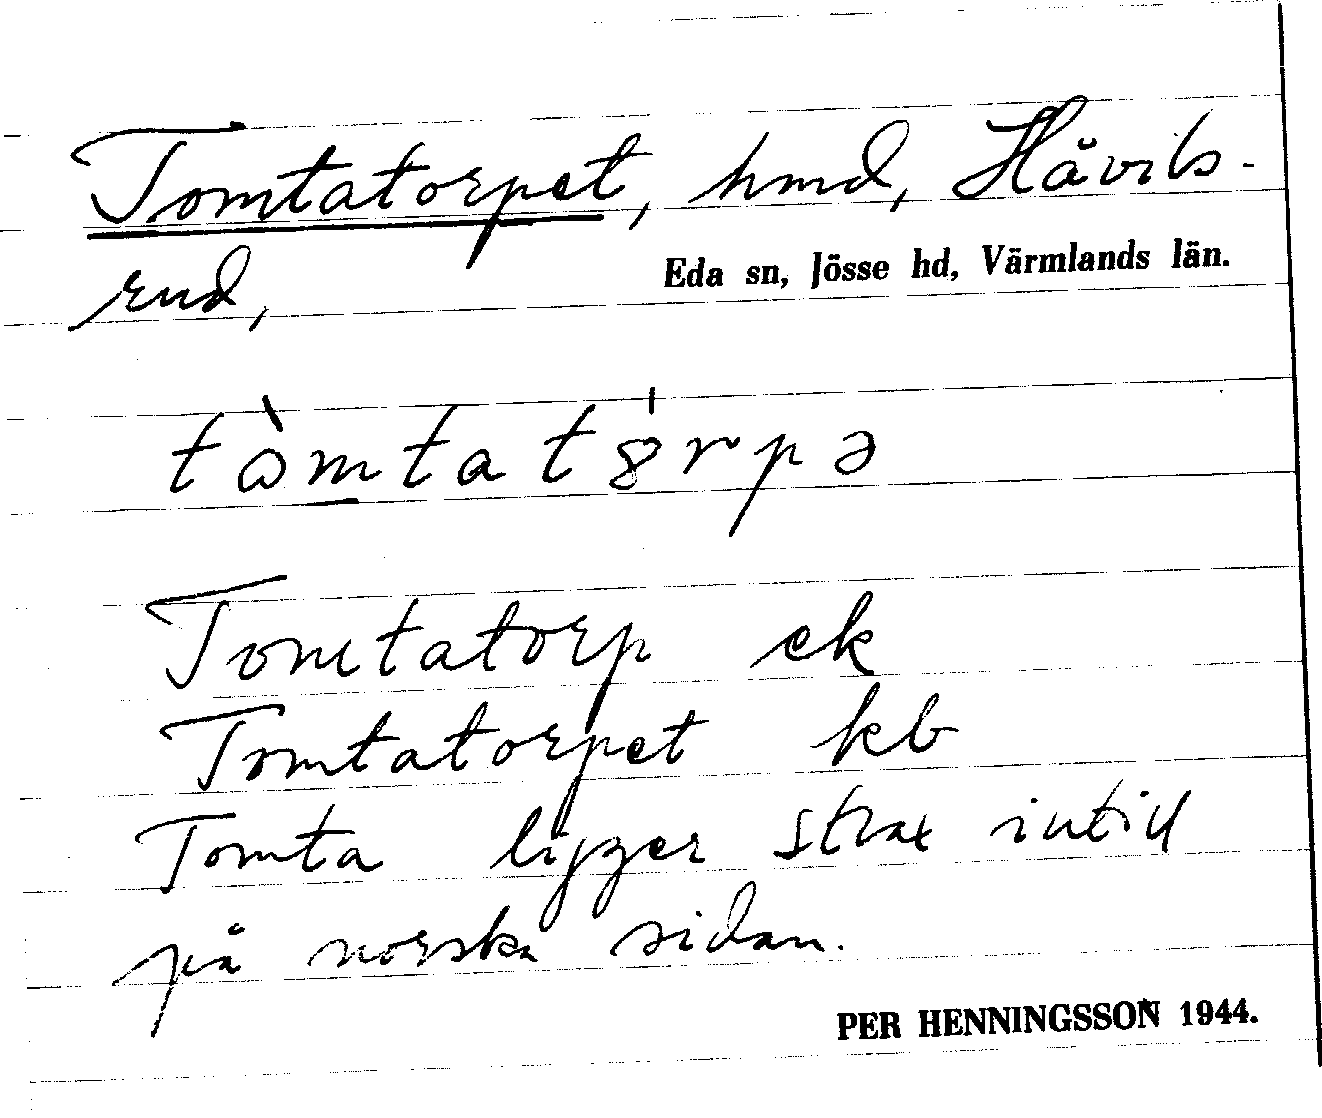 Tomtatorpet, hmd, Håvils-
rud,
Eda sn, Jösse hd, Värmlands län.
tòmtatȣ́rpə
Tomtatorp ek
Tomtatorpet kb
Tomta ligger strax intill
på norska sidan.
PER HENNINGSSON 1944.